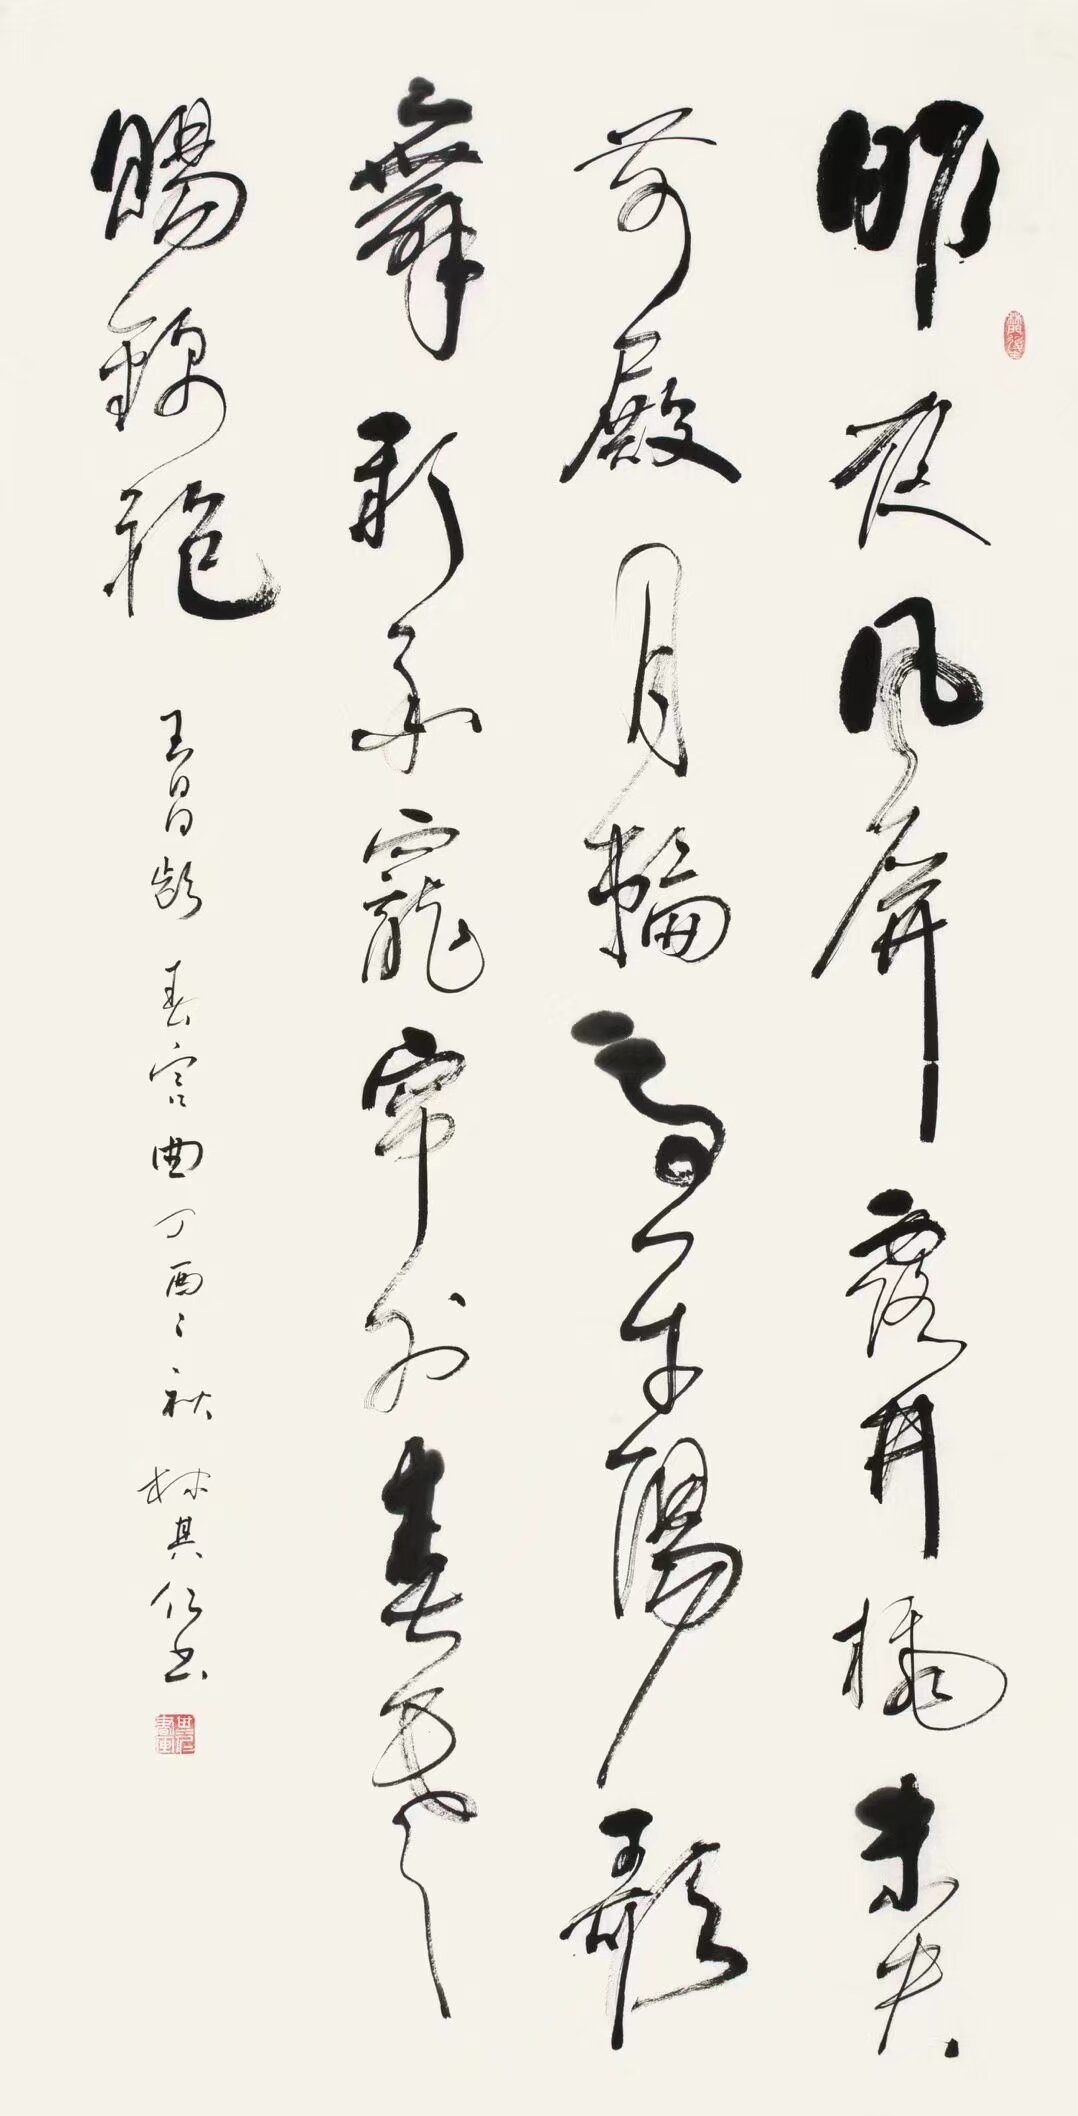 昨夜風屏露井桃未央
前殿月輪高平陽歌
舞新承寵帘外春寒
賜錦袍
王昌齡 春宮曲 丁酉之秋 林其書